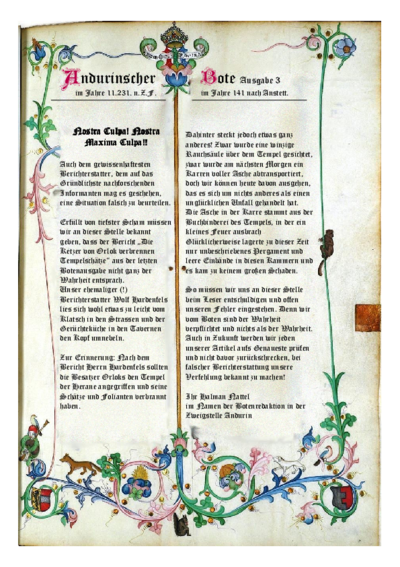 Andurinscher Bote Ausgabe 3
im Jahre 11.231. n.Z.F. im Jahre 141 nach Anstett.
Nostra Culpa! Nostra
Maxima Culpa!!
Auch dem gewissenhaftesten
Berichterstatter, dem auf das
Gründlichste nachforschenden
Informanten mag es geschehen,
eine Situation falsch zu beurteilen.
Erfüllt von tiefster Scham müssen
wir an dieser Stelle bekannt
geben, dass der Bericht „Die
Ketzer von Orlok verbrennen
Tempelschätze" aus der letzten
Botenausgabe nicht ganz der
Wahrheit entsprach.
Unser ehemaliger (!)
Berichterstatter Wolf Hardenfels
lies sich wohl etwas zu leicht vom
Klatsch in den Strassen und der
Gerüchteküche in den Tavernen
den Kopf umnebeln.
Zur Erinnerung: Nach dem
Bericht Herrn Hardenfels sollten
die Besatzer Orloks den Tempel
der Herane angegriffen und seine
Schätze und Folianten verbrannt
haben.
Dahinter steckt jedoch etwas ganz
anderes! Zwar wurde eine winzige
Rauchsäule über dem Tempel gesichtet,
zwar wurde am nächsten Morgen ein
Karren voller Asche abtransportiert,
doch wir können heute davon ausgehen,
das es sich um nichts anderes als einen
unglücklichen Unfall gehandelt hat.
Die Asche in der Karre stammt aus der
Buchbinderei des Tempels, in der ein
kleines Feuer ausbrach
Glücklicherweise lagerte zu dieser Zeit
nur unbeschriebenes Pergament und
leere Einbände in diesen Kammern und
es kam zu keinem großen Schaden.
So müssen wir uns an dieser Stelle
beim Leser entschuldigen und offen
unseren Fehler eingestehen. Denn wir
vom Boten sind der Wahrheit
verpflichtet und nichts als der Wahrheit.
Auch in Zukunft werden wir jeden
unserer Artikel aufs Genaueste prüfen
und nicht davor zurückschrecken, bei
falscher Berichterstattung unsere
Verfehlung bekannt zu machen!
Ihr Halman Nattel
im Namen der Botenredaktion in der
Zweigstelle Andurin